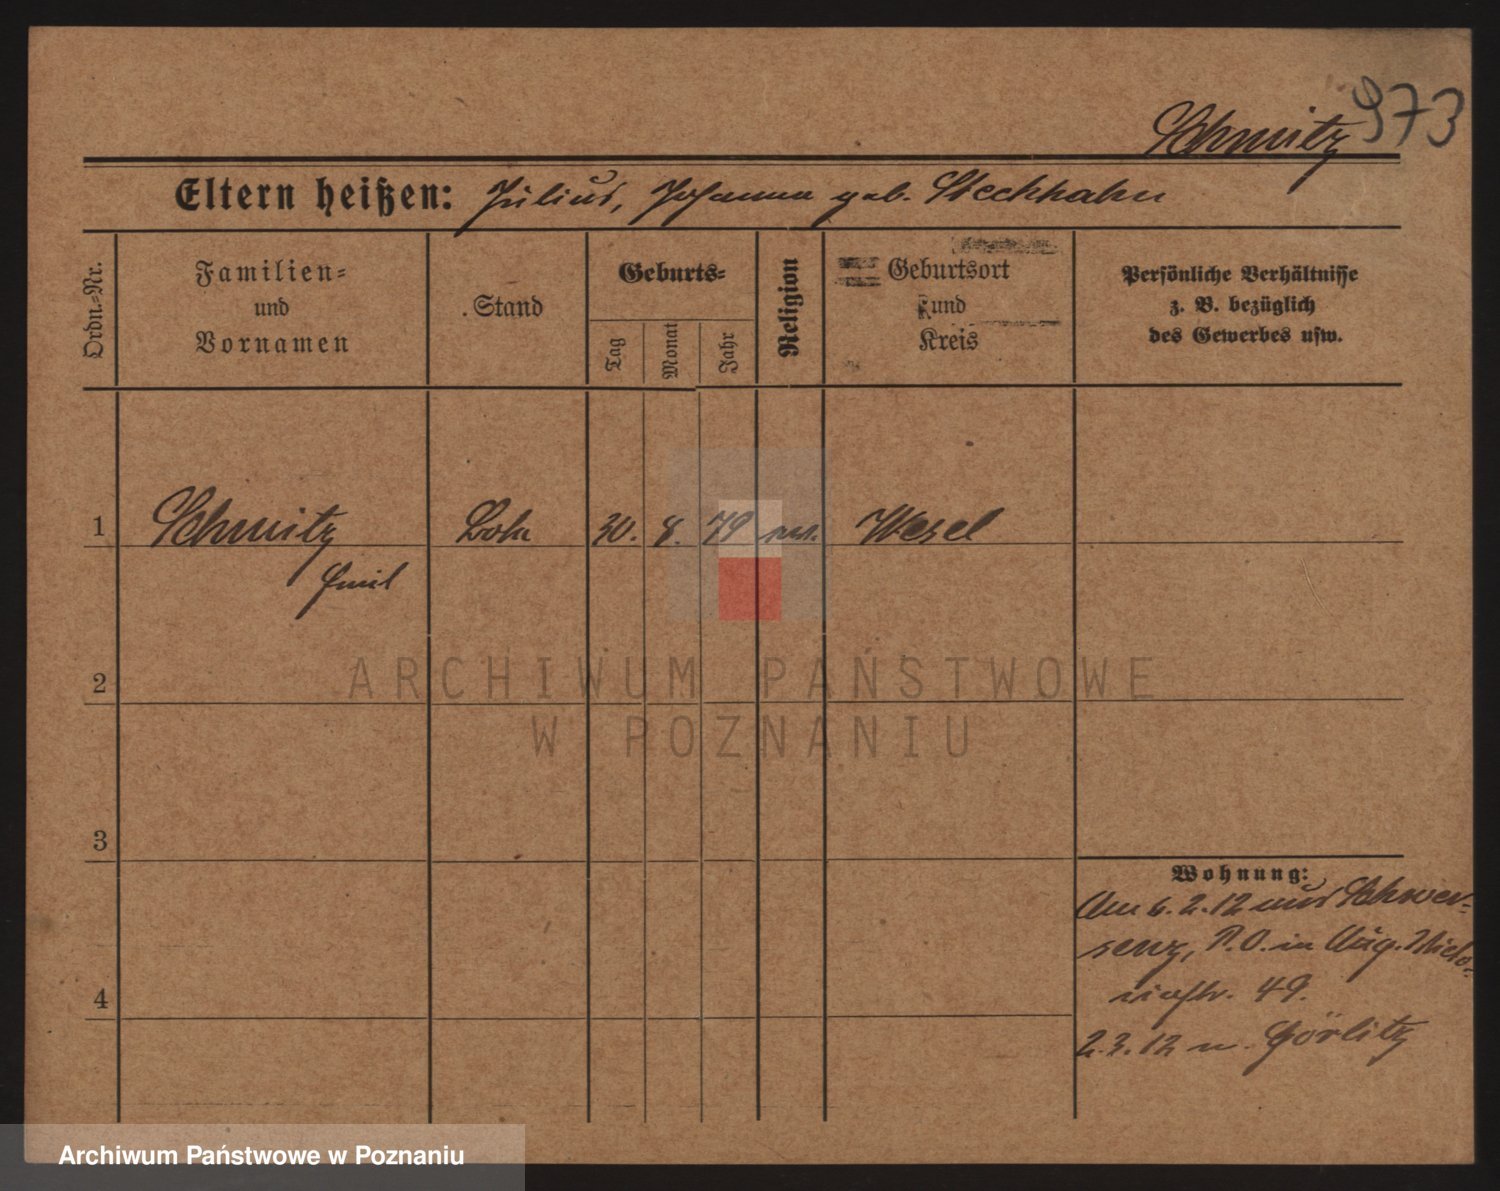 Schmitz 973
Eltern heißen: Julius, Johanna geb. Stechhahn
Ordn.-Nr.
Familien-
und
Vornamen
Stand
Geburts-
Tag
Monat
Jahr
Religion
Geburtsort
und
Kreis
Persönliche Verhältnisse
z. B. bezüglich
des Gewerbes usw.
1 Schmitz 30. 8. 79 Wesel
Emil
2
3
4
Wohnung:
6.2.12 aus Schwer-
senz, P.O. in Aug. Victo-
riastr. 49.
2.3.12 n. Görlitz
ARCHIWUM PAŃSTWOWE
W POZNANIU
Archiwum Państwowe w Poznaniu